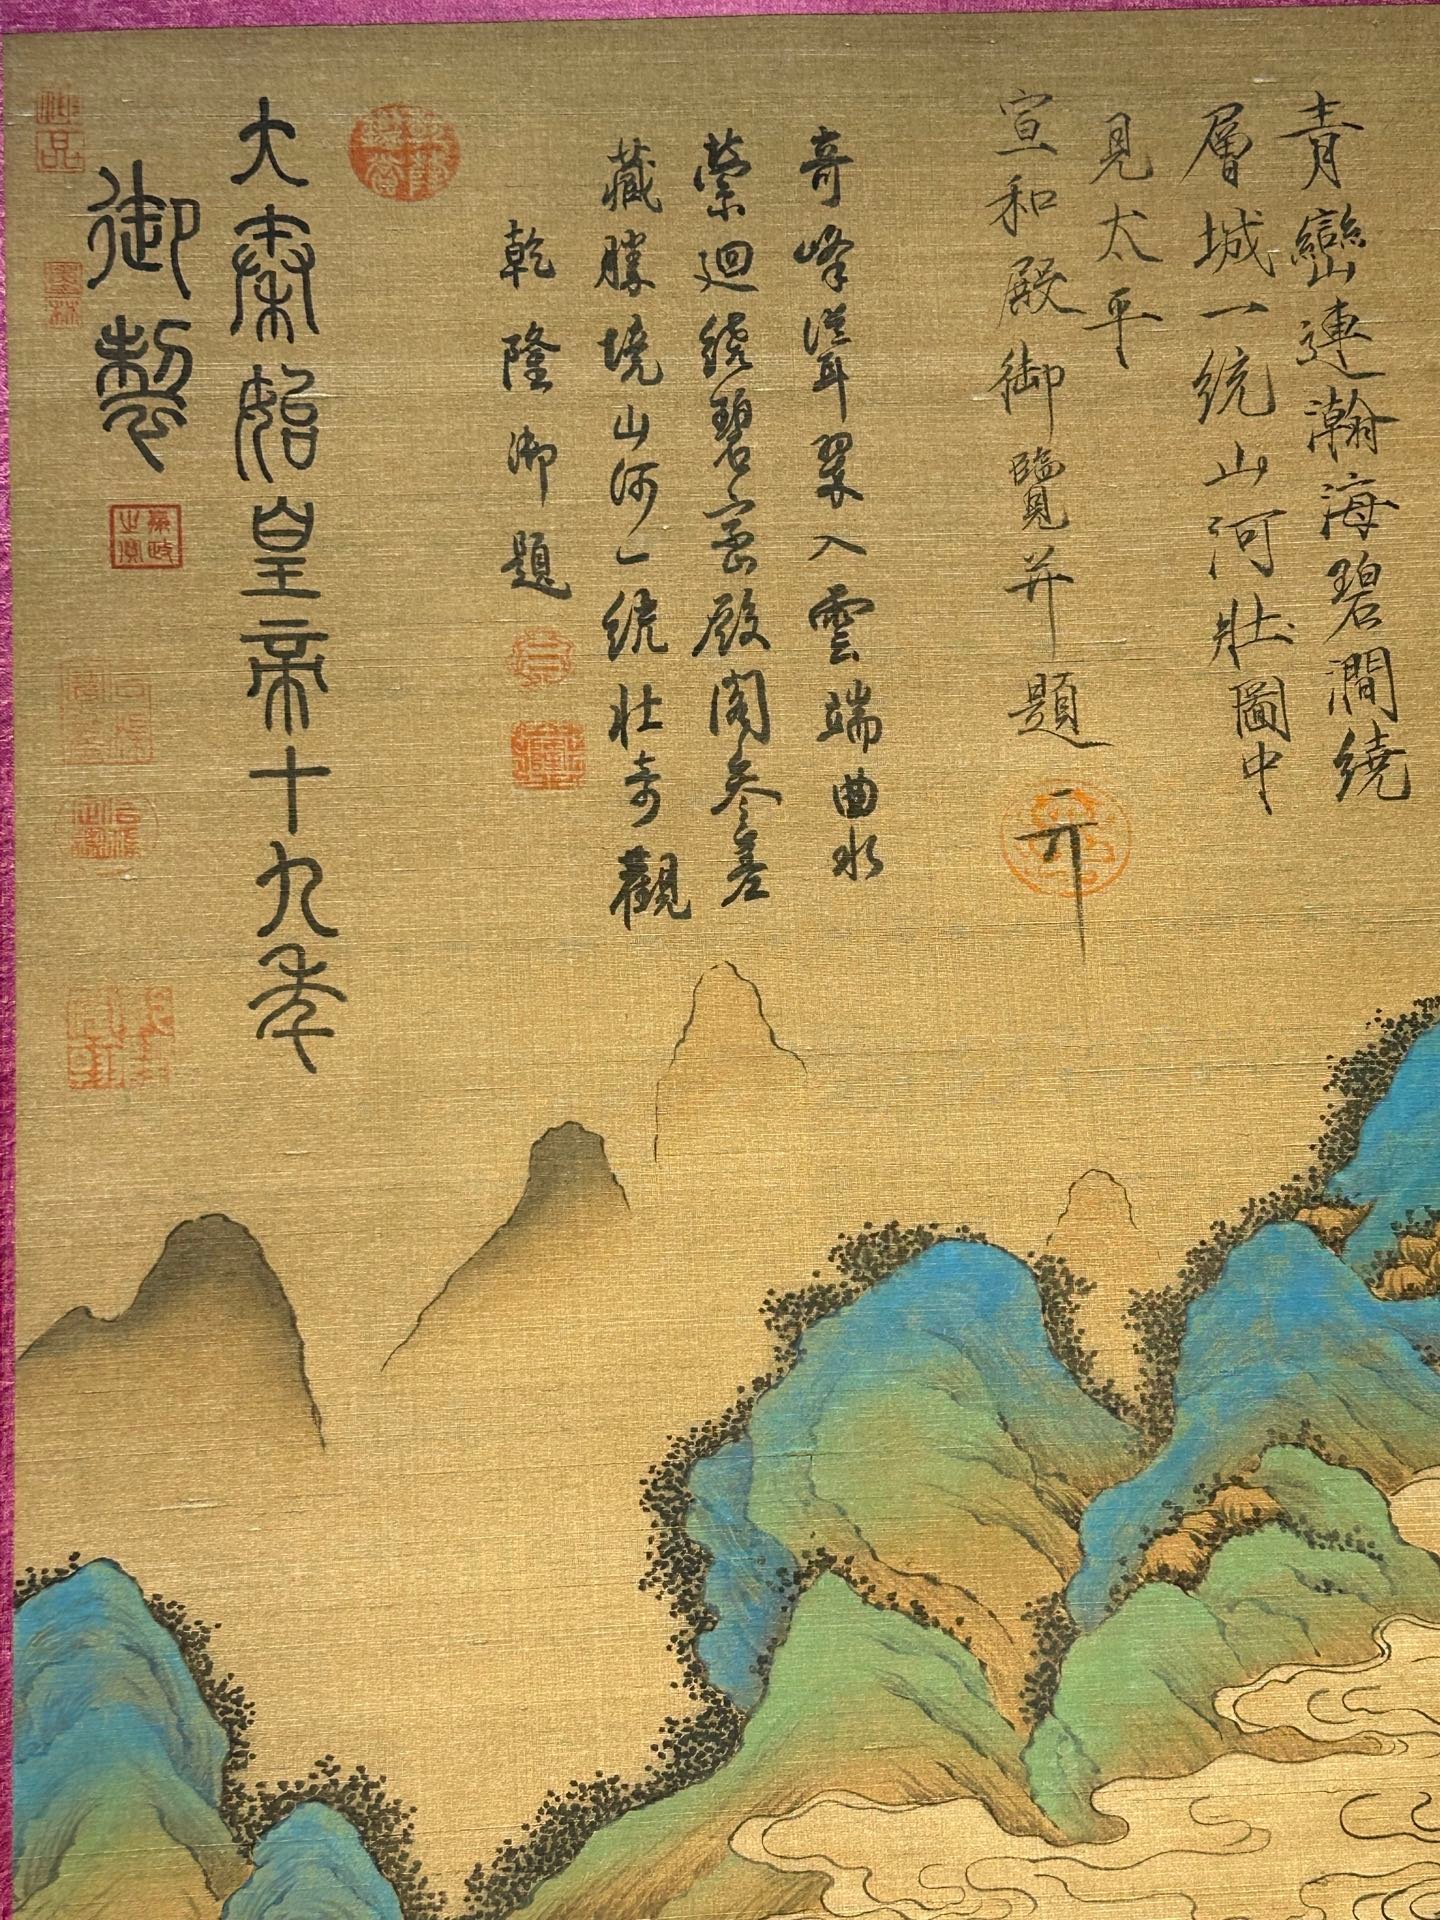 青巒連瀚海碧澗繞
層城一統山河壯圖中
見太平
宣和殿御覽并題
奇峰聳翠入雲端曲水
縈迴繞碧巒殿閣參差
藏勝境山河一統壯奇觀
乾隆御題
大秦始皇帝十九年
御製
神品
墨林